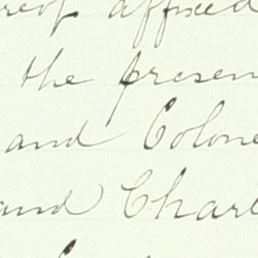 reof affixed
the presen
and Colone
and Charl